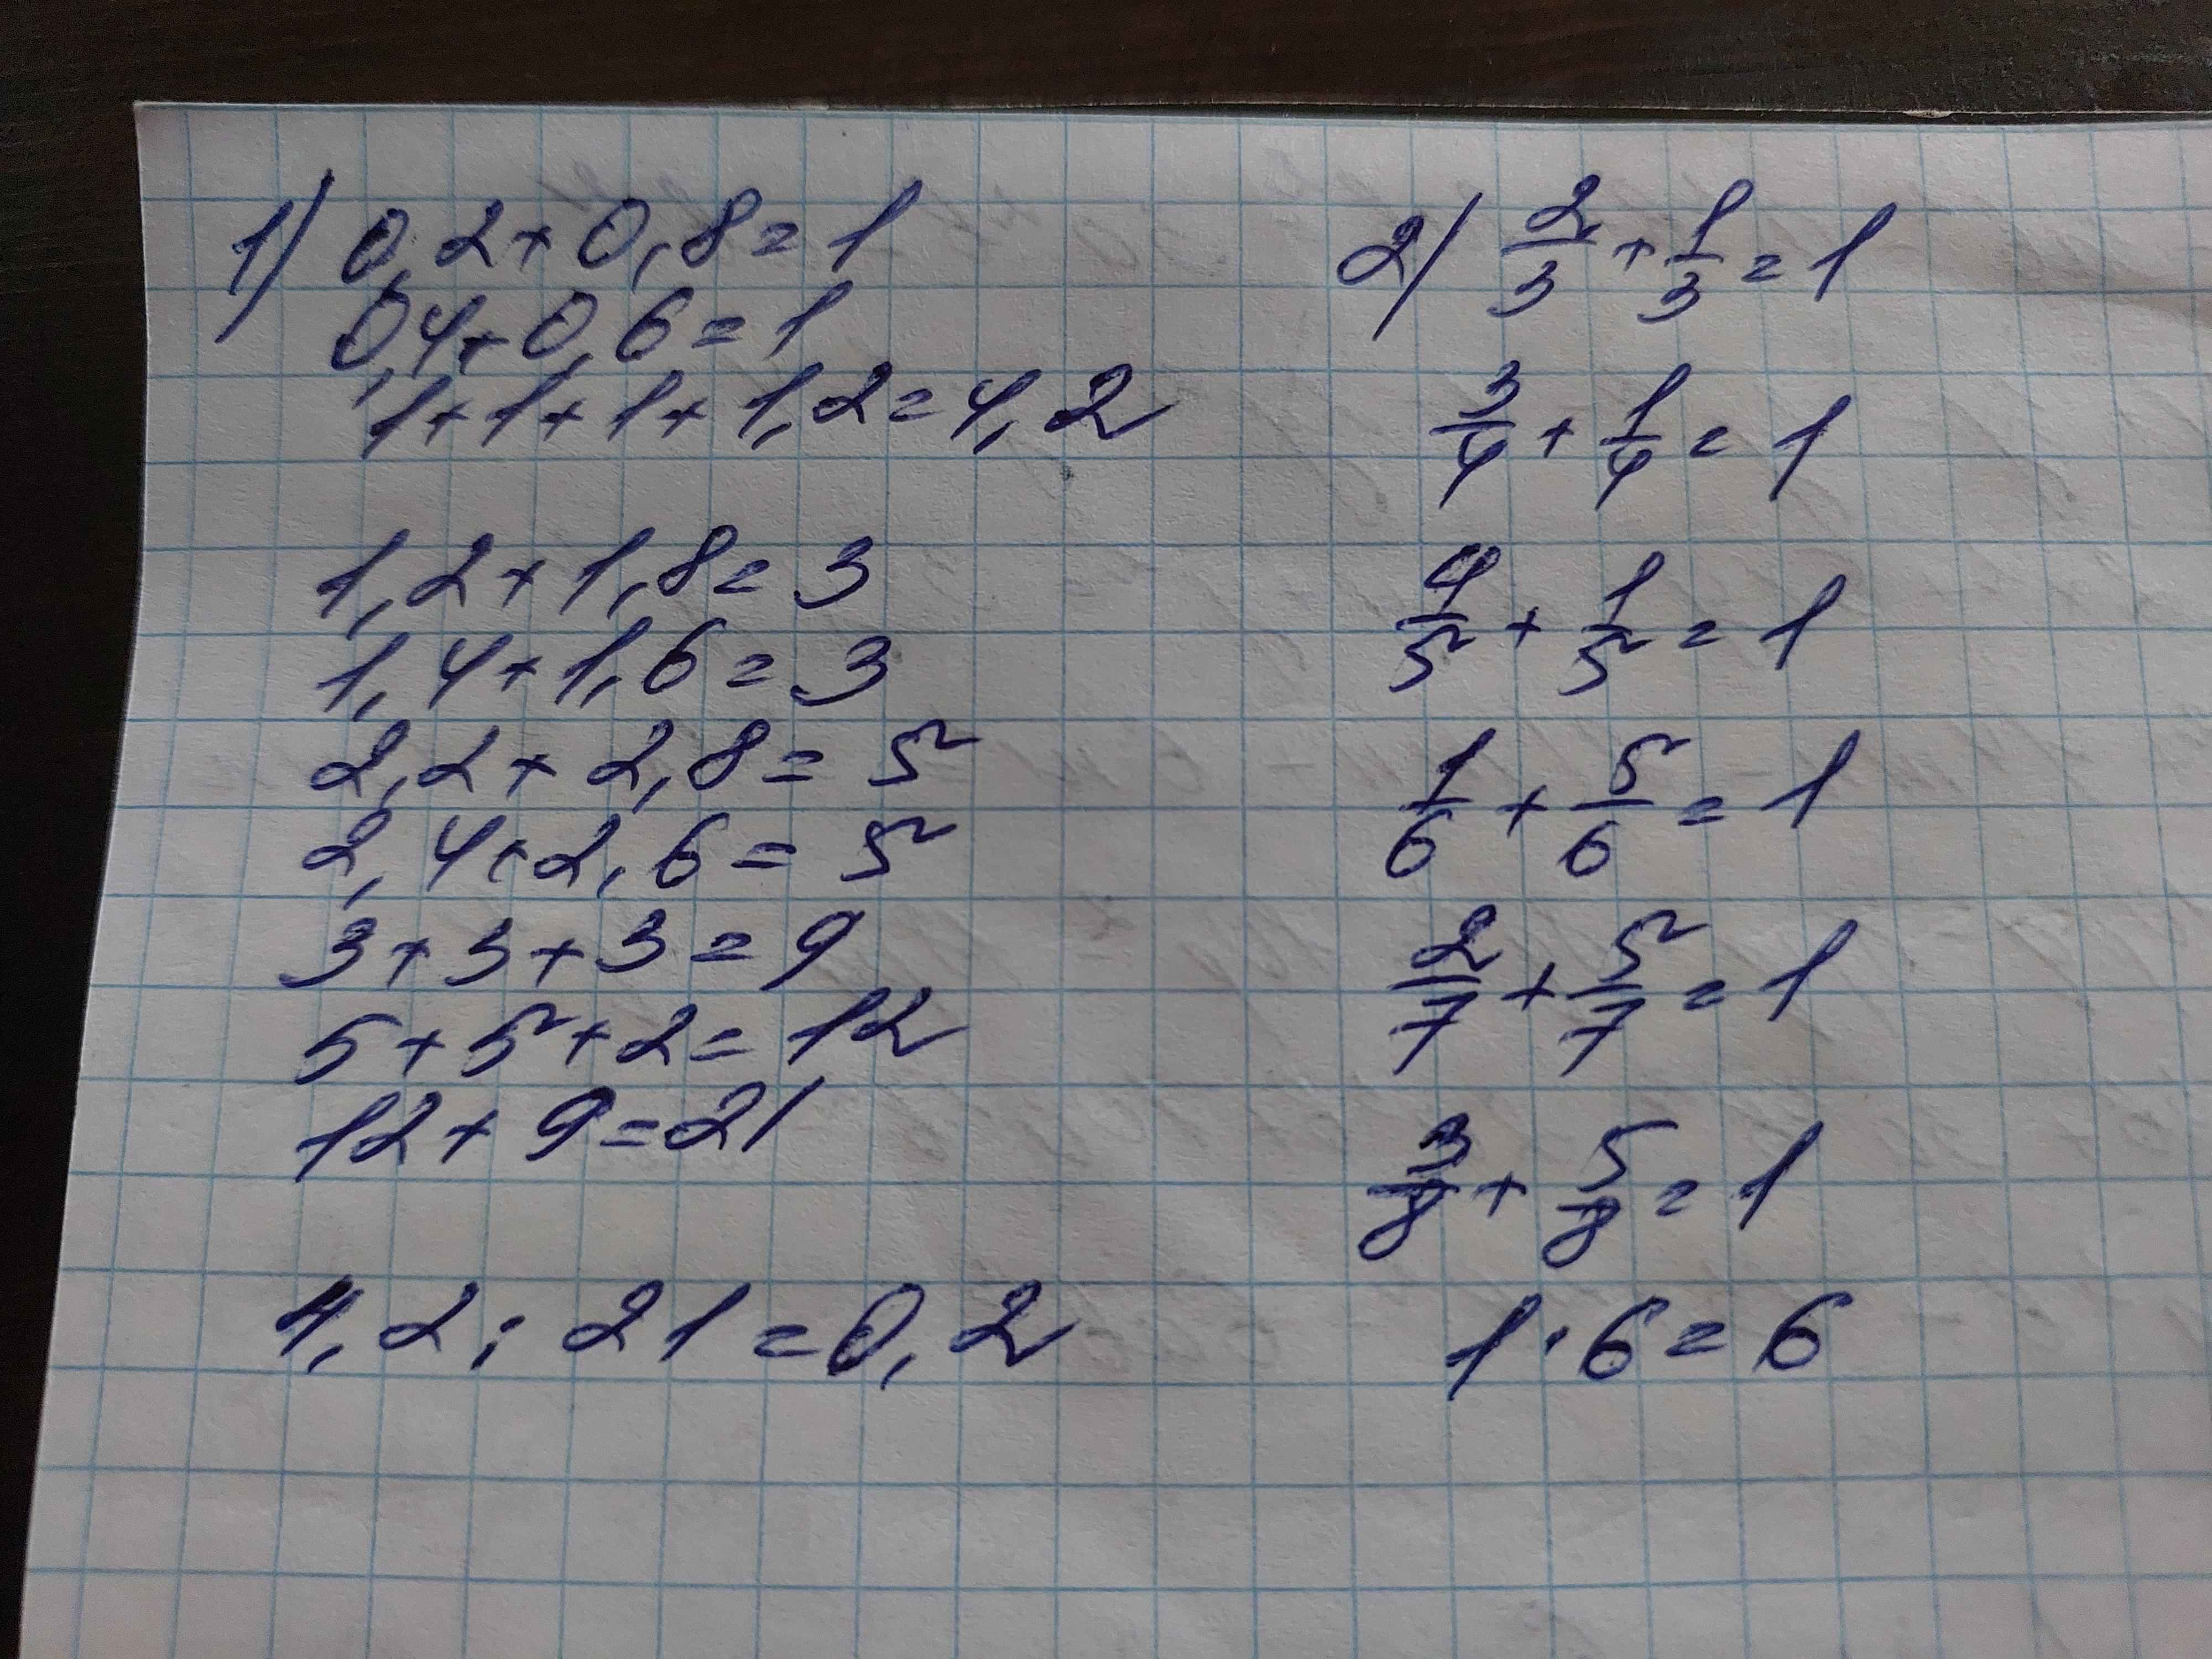 1) 0,2+0,8=1
0,4+0,6=1
1+1+1+1,2=4,2
1,2+1,8=3
1,4+1,6=3
2,2+2,8=5
2,4+2,6=5
3+3+3=9
5+5+2=12
12+9=21
4,2:21=0,2
2) 2/3+1/3=1
3/4+1/4=1
4/5+1/5=1
1/6+5/6=1
2/7+5/7=1
3/8+5/8=1
1·6=6